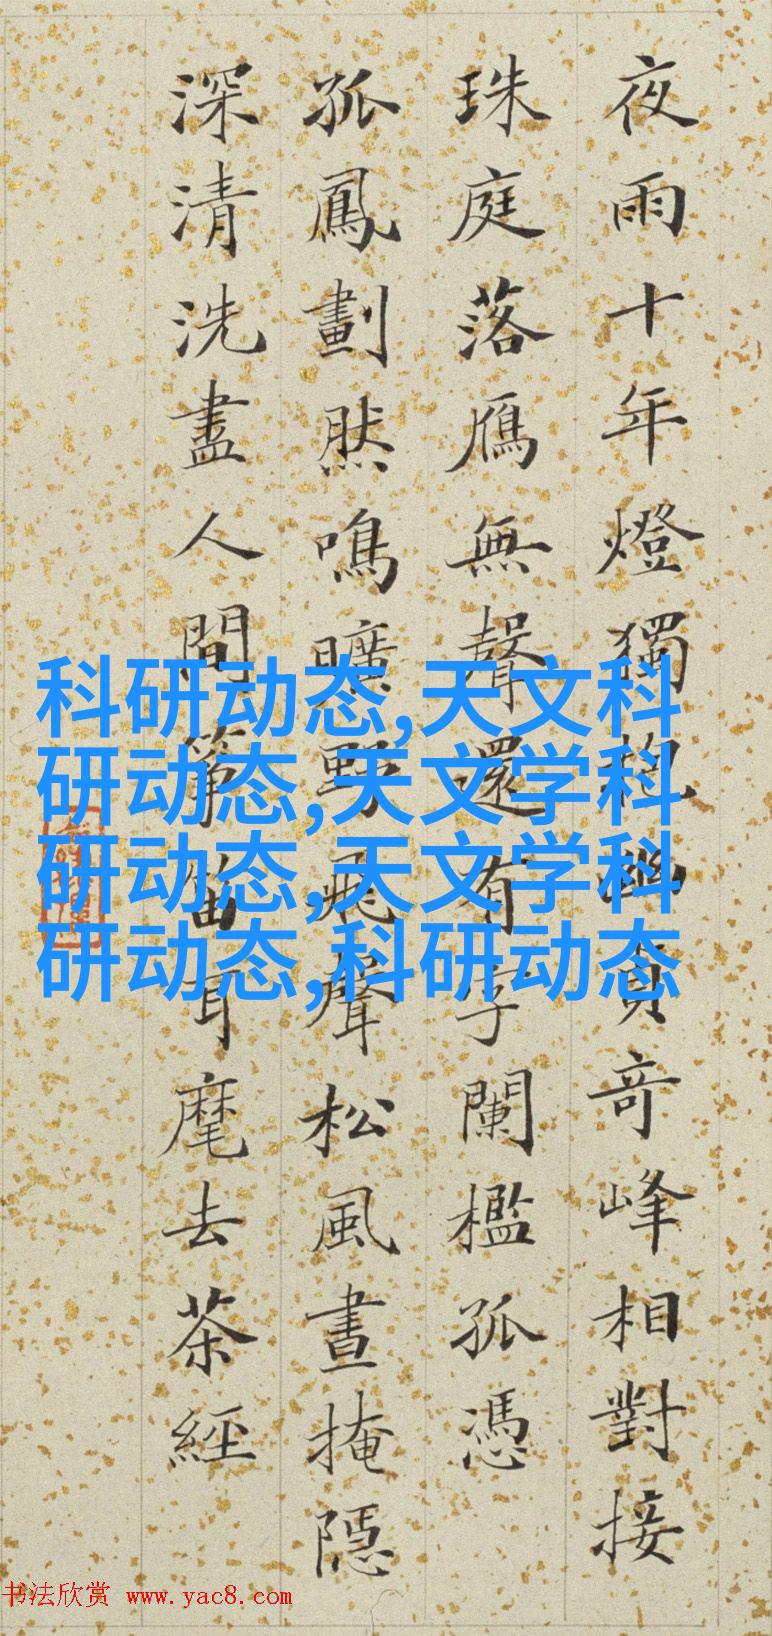 夜雨十年燈獨抱幽貞奇峰相對接
珠庭落鴈無聲還有字闌檻孤憑
孤鳳劃然鳴曠野飛聲松風晝掩隱
深清洗盡人間箏笛耳麾去茶經
科研动态,天文科
研动态,天文学科
研动态,天文学科
研动态,科研动态
书法欣赏 www.yac8.com